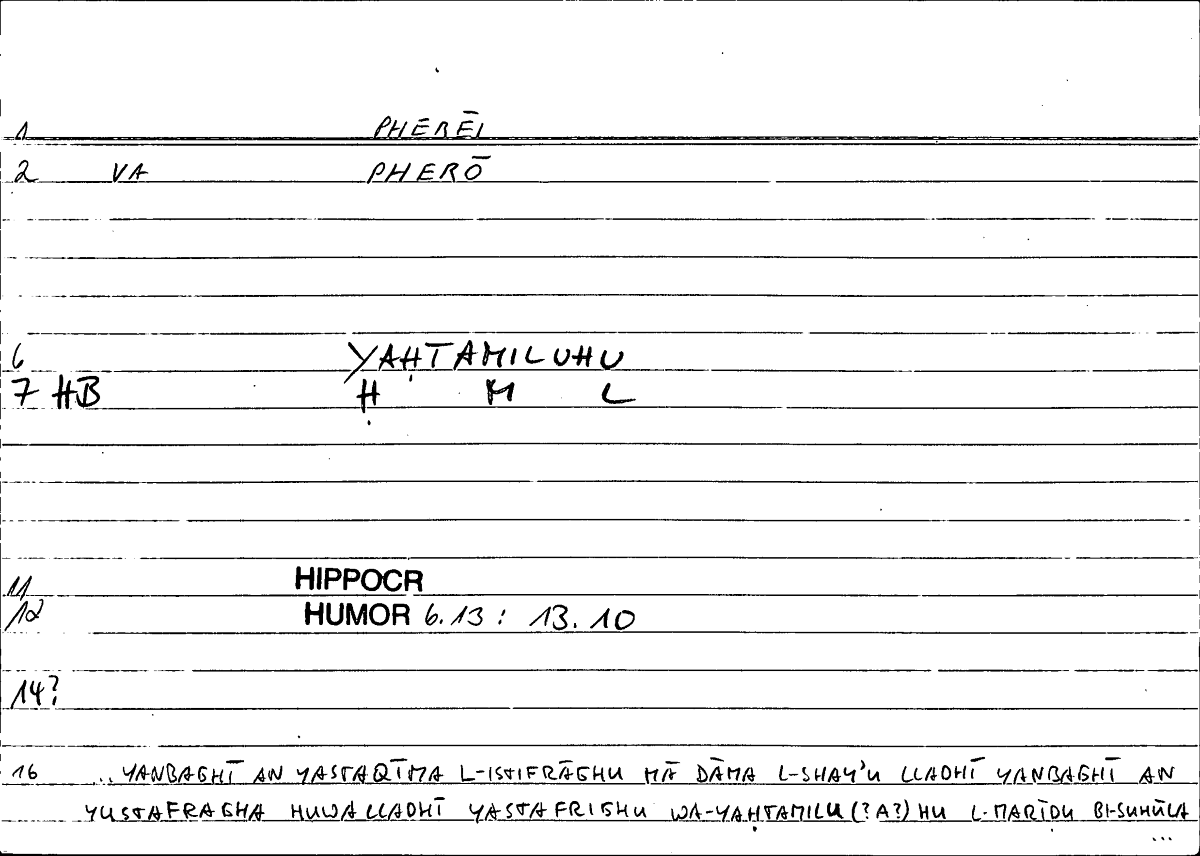 1 PHERĒI
2 VA PHERŌ
6 YAḤTAMILUHU
7 HB Ḥ M L
11 HIPPOCR
12 HUMOR 6.13 : 13.10
14?
16 ... YANBAGHĪ AN YASTAQĪMA L-ISTIFRĀGHU MĀ DĀMA L-SHAY'U LLADHĪ YANBAGHĪ AN
YUSTAFRAGHA HUWA LLADHĪ YASTAFRIGHU WA-YAḤTAMILU(?A?)HU L-MARĪḌU BI-SUHŪLA
...